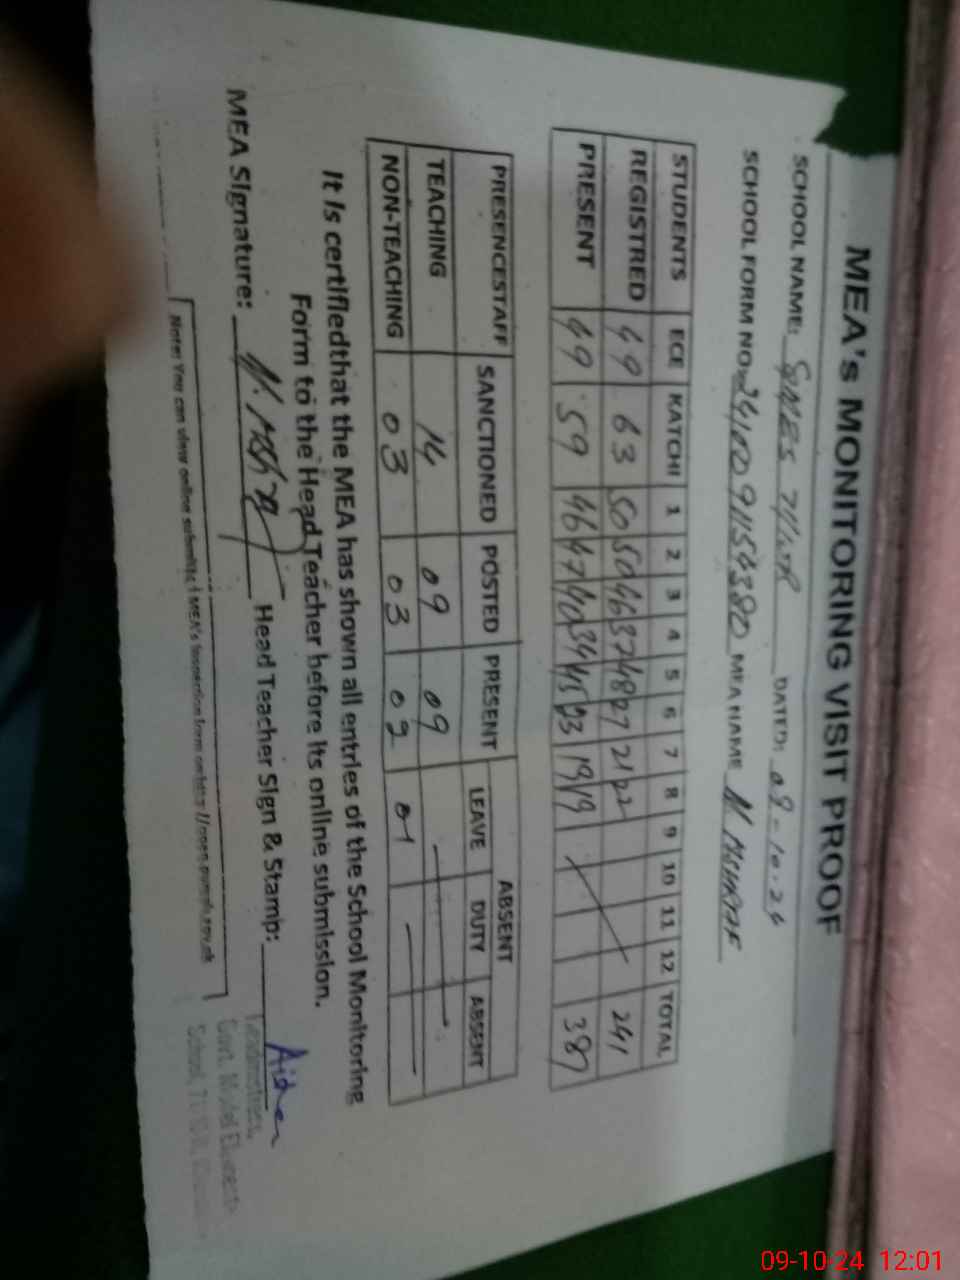 MEA's MONITORING VISIT PROOF
SCHOOL NAME: GMES 71/10R DATED: 09-10-24
SCHOOL FORM NO. 2410091154380 MEA NAME M. MSHTAF
STUDENTS ECE KATCHI 1 2 3 4 5 6 7 8 9 10 11 12 TOTAL
REGISTRED 49 63 50 50 46 37 48 27 21 22 241
PRESENT 49 59 46 47 40 34 45 23 19 19 387
PRESENCESTAFF SANCTIONED POSTED PRESENT ABSENT
LEAVE DUTY ABSENT
TEACHING 14 09 09
NON-TEACHING 03 03 02 01
It is certifiedthat the MEA has shown all entries of the School Monitoring
Form to the Head Teacher before its online submission.
MEA Signature: Head Teacher Sign & Stamp:
Headmistress,
Govt. Model Element
School, 71/10R,
Note: You can view online submitted MEA's inspection form on
09-10-24 12:01